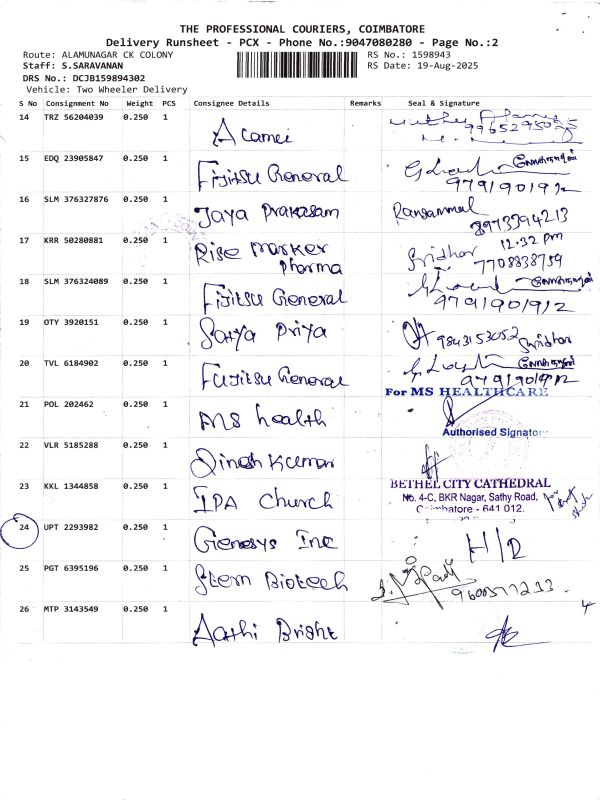 THE PROFESSIONAL COURIERS, COIMBATORE
Delivery Runsheet - PCX - Phone No.:9047080280 - Page No.:2
Route: ALAMUNAGAR CK COLONY
RS No.: 1598943
Staff: S.SARAVANAN
RS Date: 19-Aug-2025
DRS No.: DCJB159894302
Vehicle: Two Wheeler Delivery
S No Consignment No Weight PCS Consignee Details Remarks Seal & Signature
14 TRZ 56204039 0.250 1 Acamei
9965295035
15 EDQ 23905847 0.250 1 Fijitsu General
9791901912
16 SLM 376327876 0.250 1 Jaya Prakasam Rangammal
8973394213
17 KRR 50280881 0.250 1 Rise Marker Pharma Sridhar 12:32 pm
7708838759
18 SLM 376324089 0.250 1 Fijitsu General
9791901912
19 OTY 3920151 0.250 1 Satya Priya 9843153052 Sridhar
20 TVL 6184902 0.250 1 Fujitsu General
9791901912
For MS HEALTHCARE
21 POL 202462 0.250 1 MS health
Authorised Signatory
22 VLR 5185288 0.250 1 Dinesh Kumar
BETHEL CITY CATHEDRAL
23 KKL 1344858 0.250 1 IPA Church
No. 4-C, BKR Nagar, Sathy Road,
Coimbatore - 641 012.
24 UPT 2293982 0.250 1 Genesys Inc H/D
25 PGT 6395196 0.250 1 Stem Biotech
9600577233
26 MTP 3143549 0.250 1 Aathi Bright